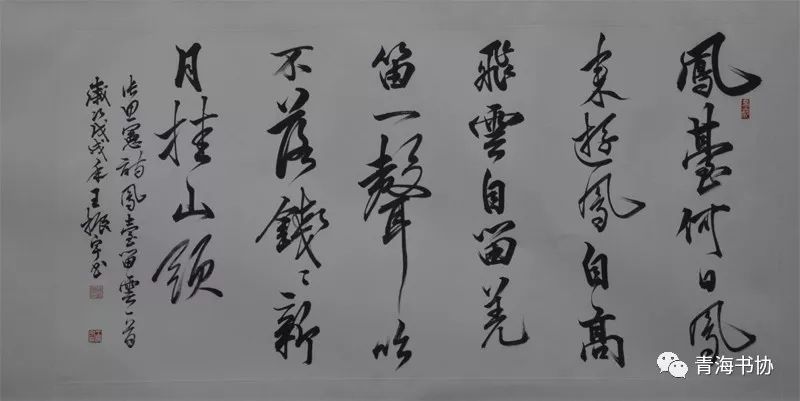 鳳臺何日鳳
来遊鳳自高
飛雲自留羌
笛一聲吹
不落纖〻新
月挂山頭
張思憲詩鳳臺留雲一首
歲次戊戌年王振宇书
青海书协